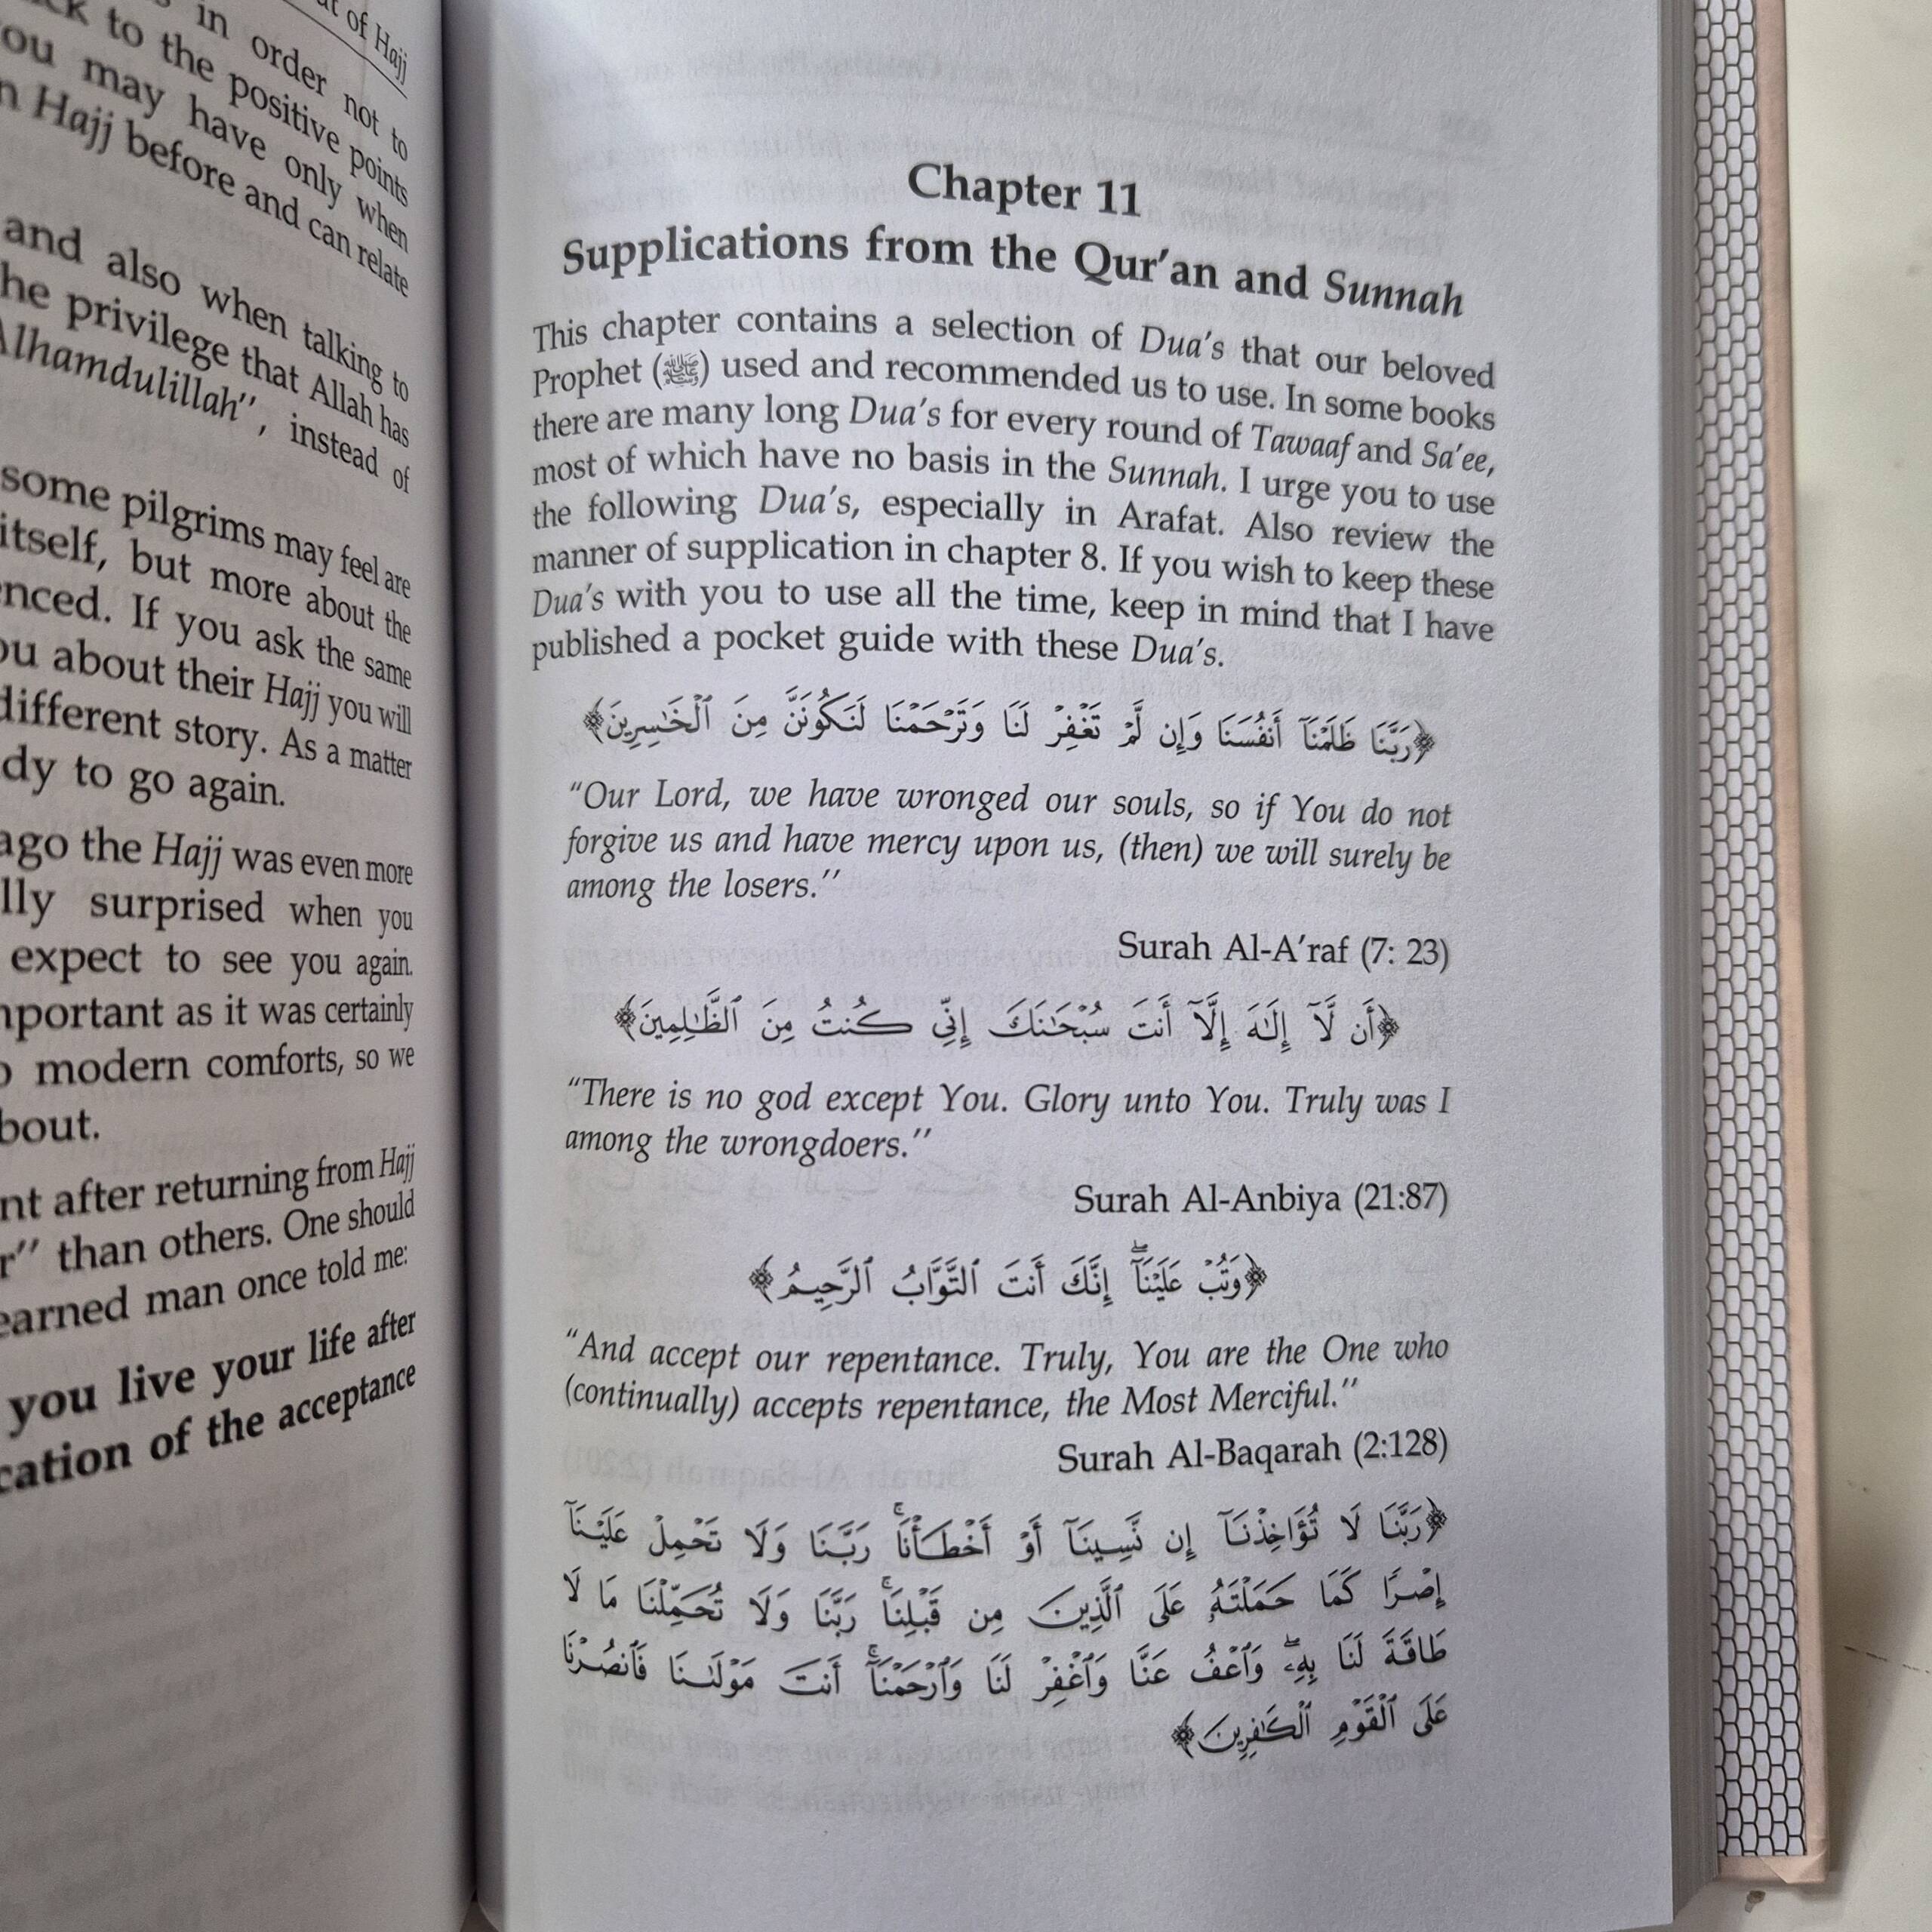 t of Hajj
in order not to
ck to the positive points
ou may have only when
n Hajj before and can relate
and also when talking to
he privilege that Allah has
Alhamdulillah'', instead of
some pilgrims may feel are
itself, but more about the
enced. If you ask the same
ou about their Hajj you will
different story. As a matter
dy to go again.
ago the Hajj was even more
lly surprised when you
expect to see you again.
mportant as it was certainly
o modern comforts, so we
bout.
nt after returning from Hajj
r'' than others. One should
earned man once told me:
you live your life after
cation of the acceptance
Chapter 11
Supplications from the Qur'an and Sunnah
This chapter contains a selection of Dua's that our beloved
Prophet (ﷺ) used and recommended us to use. In some books
there are many long Dua's for every round of Tawaaf and Sa'ee,
most of which have no basis in the Sunnah. I urge you to use
the following Dua's, especially in Arafat. Also review the
manner of supplication in chapter 8. If you wish to keep these
Dua's with you to use all the time, keep in mind that I have
published a pocket guide with these Dua's.
﴿رَبَّنَا ظَلَمْنَآ أَنفُسَنَا وَإِن لَّمْ تَغْفِرْ لَنَا وَتَرْحَمْنَا لَنَكُونَنَّ مِنَ ٱلْخَـٰسِرِينَ﴾
“Our Lord, we have wronged our souls, so if You do not
forgive us and have mercy upon us, (then) we will surely be
among the losers.’’
Surah Al-A'raf (7: 23)
﴿أَن لَّآ إِلَـٰهَ إِلَّآ أَنتَ سُبْحَـٰنَكَ إِنِّى كُنتُ مِنَ ٱلظَّـٰلِمِينَ﴾
“There is no god except You. Glory unto You. Truly was I
among the wrongdoers.’’
Surah Al-Anbiya (21:87)
﴿وَتُبْ عَلَيْنَآ ۖ إِنَّكَ أَنتَ ٱلتَّوَّابُ ٱلرَّحِيمُ﴾
“And accept our repentance. Truly, You are the One who
(continually) accepts repentance, the Most Merciful.’’
Surah Al-Baqarah (2:128)
﴿رَبَّنَا لَا تُؤَاخِذْنَآ إِن نَّسِينَآ أَوْ أَخْطَأْنَا ۚ رَبَّنَا وَلَا تَحْمِلْ عَلَيْنَآ
إِصْرًا كَمَا حَمَلْتَهُۥ عَلَى ٱلَّذِينَ مِن قَبْلِنَا ۚ رَبَّنَا وَلَا تُحَمِّلْنَا مَا لَا
طَاقَةَ لَنَا بِهِۦ ۖ وَٱعْفُ عَنَّا وَٱغْفِرْ لَنَا وَٱرْحَمْنَآ ۚ أَنتَ مَوْلَـٰنَا فَٱنصُرْنَا
عَلَى ٱلْقَوْمِ ٱلْكَـٰفِرِينَ﴾